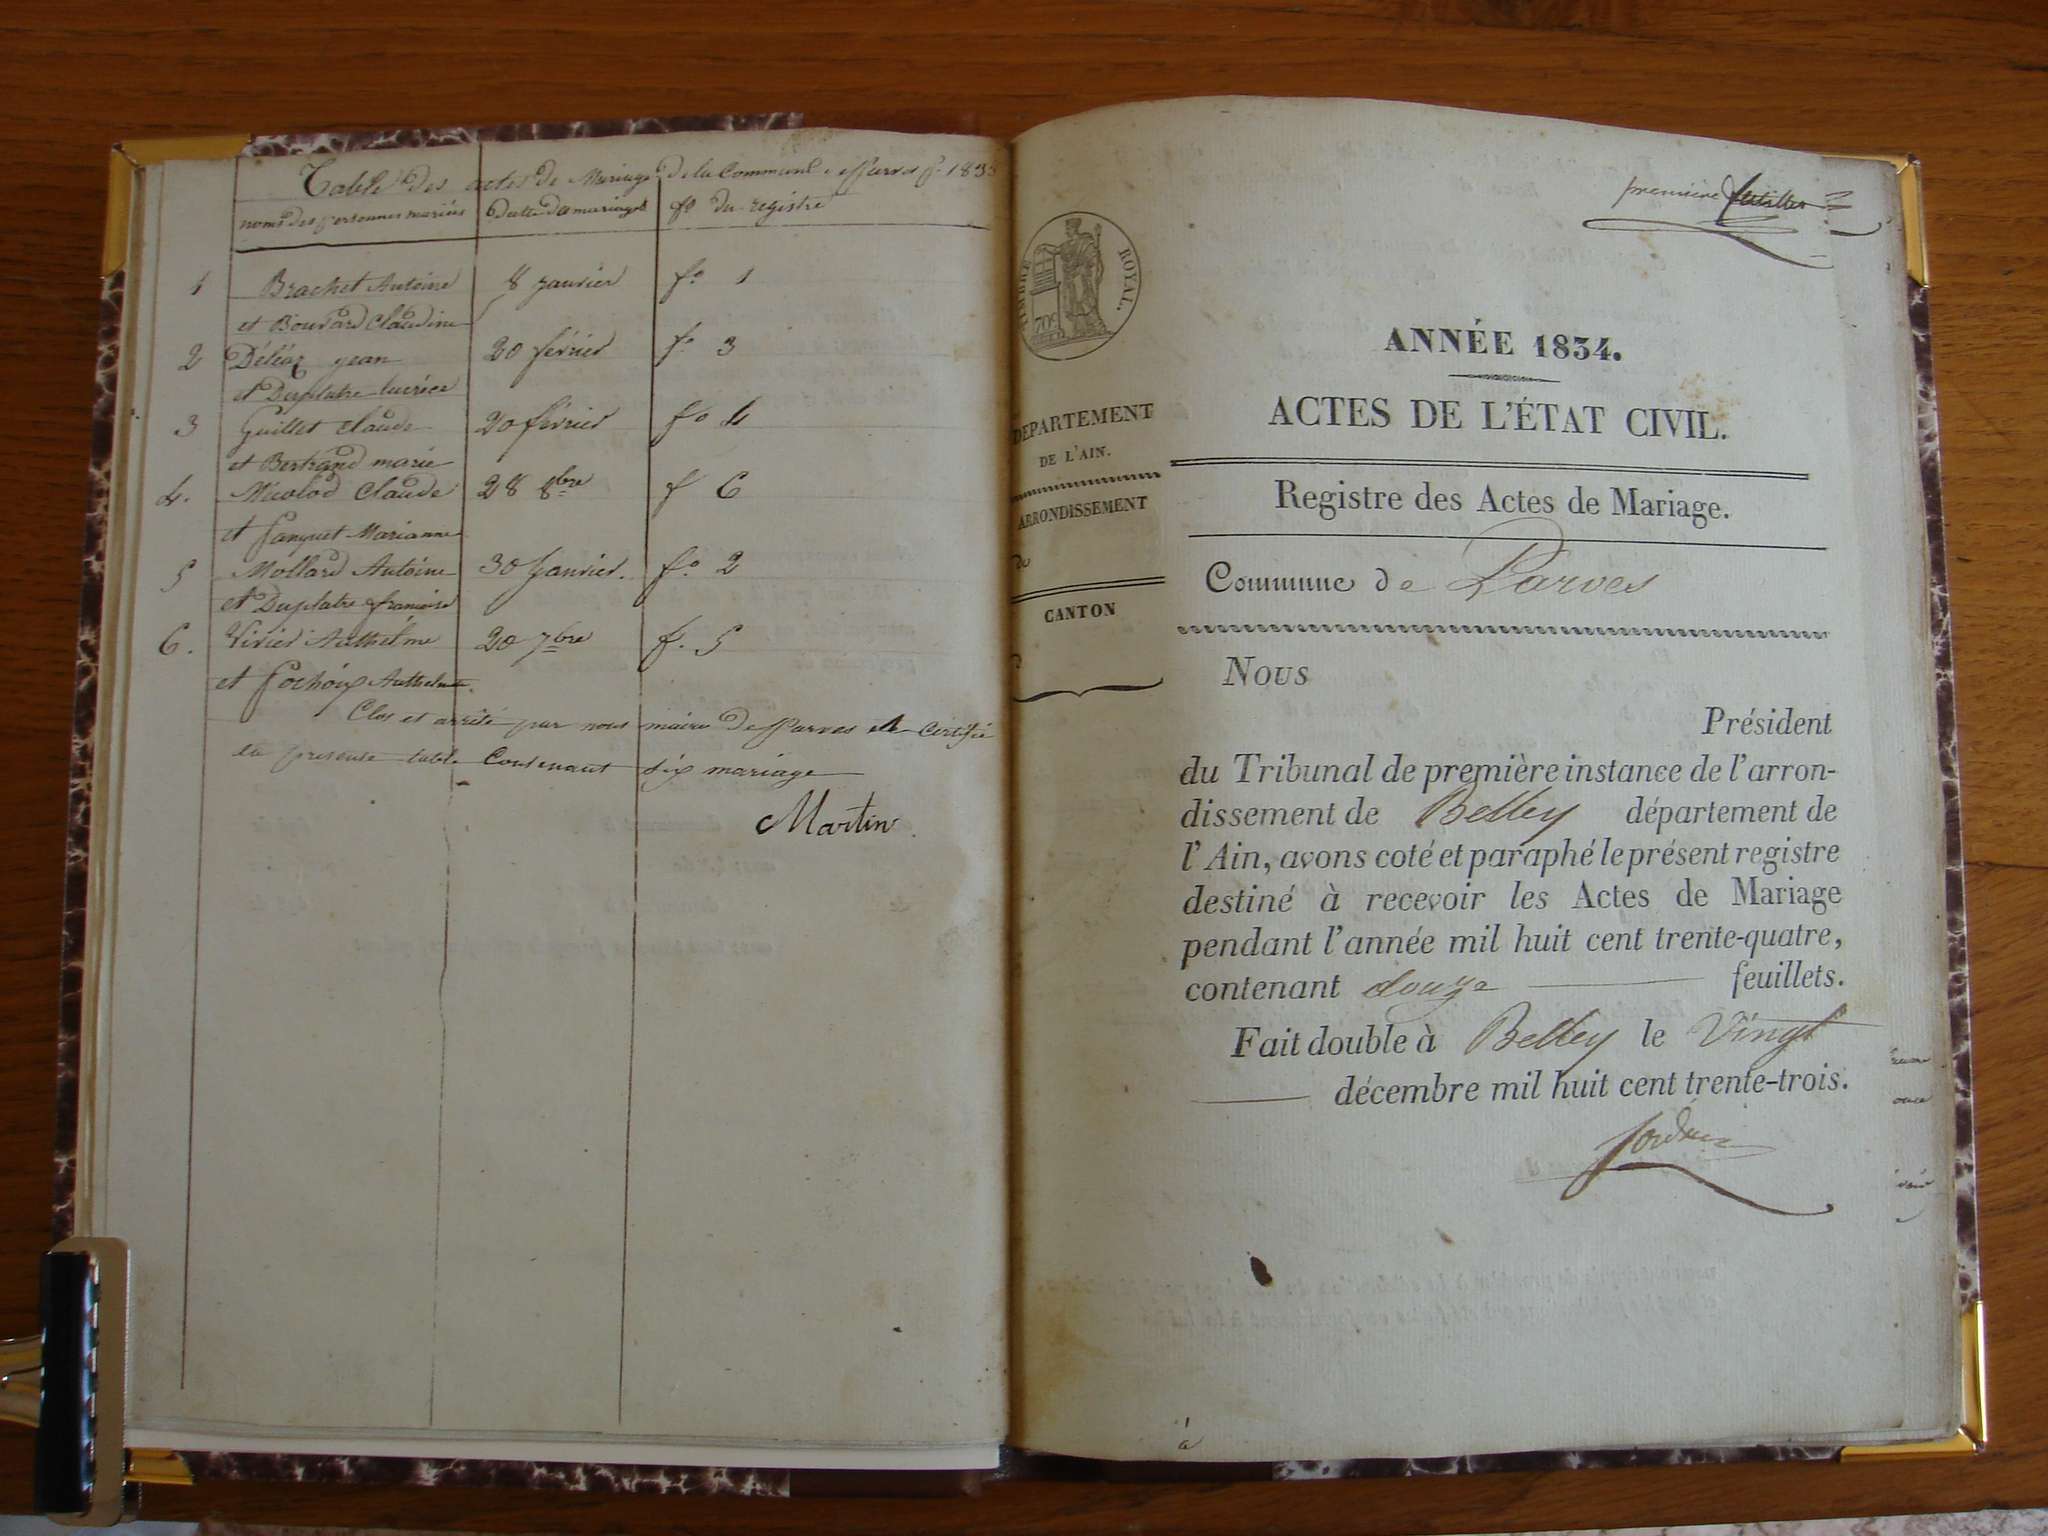 Table des actes de Mariage de la Commune de Parves pr 1833
noms des personnes mariées Datte des mariages fo du registre
1 Brachet Antoine 8 janvier fo 1
et Bouvard Claudine
2 Déléaz jean 20 février fo 3
et Duplatre lucrèce
3 Guillet claude 20 février fo 4
et Bertrand marie
4. Nicolod Claude 28 8bre f 6
et Marianne
5 Mollard Antoine 30 Janvier. fo 2
et Duplatre françoise
6. Vivier Anthelme 20 7bre f. 5
et Anthelmette.
Clos et arrêté par nous maire de Parves et certifié
la presente table Contenant six mariage
Martin
première feuillet
TIMBRE ROYAL.
70c
DEPARTEMENT
DE L'AIN.
ARRONDISSEMENT
de
CANTON
d
ANNÉE 1834.
ACTES DE L'ÉTAT CIVIL.
Registre des Actes de Mariage.
Commune de Parves
Nous
Président
du Tribunal de première instance de l'arron-
dissement de Belley département de
l'Ain, avons coté et paraphé le présent registre
destiné à recevoir les Actes de Mariage
pendant l'année mil huit cent trente-quatre,
contenant douze feuillets.
Fait double à Belley le Vingt
décembre mil huit cent trente-trois.
à